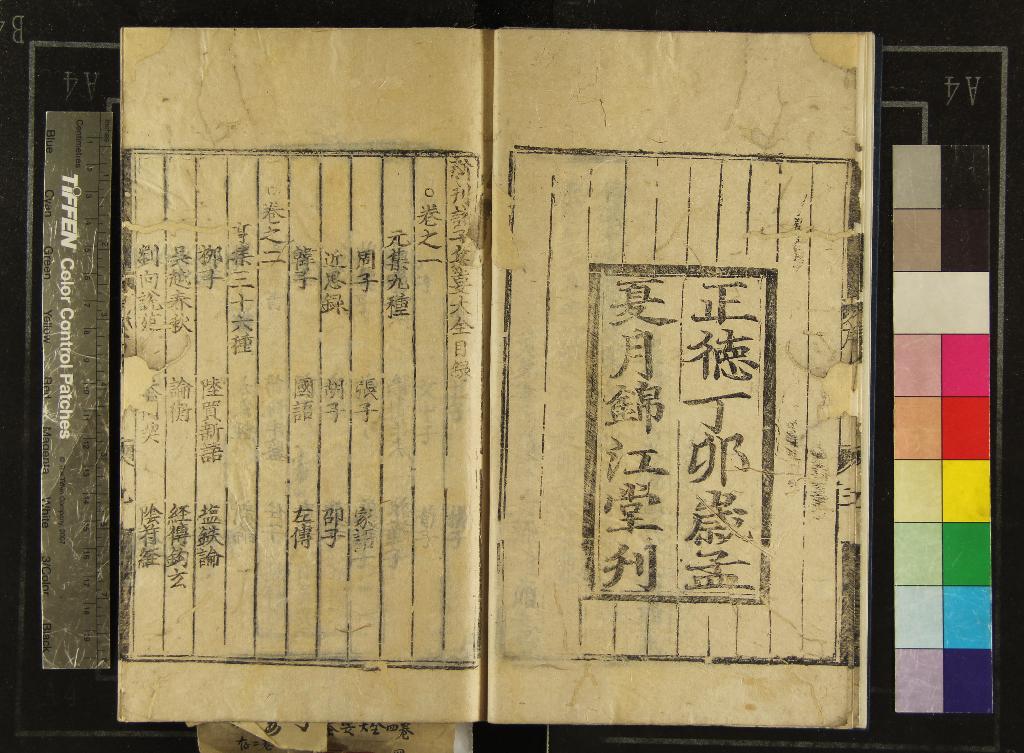 正徳丁卯歲孟
夏月錦江堂刋
大全目錄
卷之一
元集九種
周子 張子 家語
近思録 胡子 邵子
國語 左傳
卷之二
集三十六種
柳子 陸賈新語 塩鉄論
吳越春秋 論衡 經傳鈎玄
劉向說苑 陰符經
TIFFEN Color Control Patches
Centimetres
Inches
Blue
Cyan
Green
Yellow
Red
Magenta
White
3/Color
Black
A4
A4